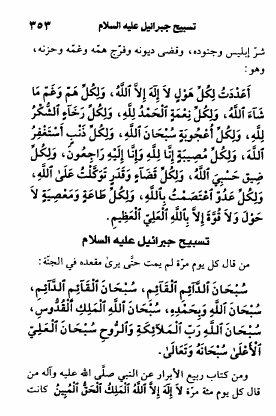 تسبيح جبرائيل عليه السلام ٣٥٣
شرّ إبليس وجنوده، وقضى ديونه وفرّج همّه وغمّه وحزنه،
وهو:
أَعْدَدْتُ لِكُلِّ هَوْلٍ لاَ إِلَهَ إِلاَّ اللَّهُ، وَلِكُلِّ هَمٍّ وَغَمٍّ مَا
شَاءَ اللَّهُ، وَلِكُلِّ نِعْمَةٍ الْحَمْدُ لِلَّهِ، وَلِكُلِّ رَخَاءٍ الشُّكْرُ
لِلَّهِ، وَلِكُلِّ أُعْجُوبَةٍ سُبْحَانَ اللَّهِ، وَلِكُلِّ ذَنْبٍ أَسْتَغْفِرُ
اللَّهَ، وَلِكُلِّ مُصِيبَةٍ إِنَّا لِلَّهِ وَإِنَّا إِلَيْهِ رَاجِعُونَ، وَلِكُلِّ
ضِيقٍ حَسْبِيَ اللَّهُ، وَلِكُلِّ قَضَاءٍ وَقَدَرٍ تَوَكَّلْتُ عَلَى اللَّهِ،
وَلِكُلِّ عَدُوٍّ اعْتَصَمْتُ بِاللَّهِ، وَلِكُلِّ طَاعَةٍ وَمَعْصِيَةٍ لاَ
حَوْلَ وَلاَ قُوَّةَ إِلاَّ بِاللَّهِ الْعَلِيِّ الْعَظِيمِ.
تسبيح جبرائيل عليه السلام
من قال كل يوم مرّة لم يمت حتّى يرى مقعده في الجنّة:
سُبْحَانَ الدَّائِمِ الْقَائِمِ، سُبْحَانَ الْقَائِمِ الدَّائِمِ،
سُبْحَانَ اللَّهِ وَبِحَمْدِهِ، سُبْحَانَ اللَّهِ الْمَلِكِ الْقُدُّوسِ،
سُبْحَانَ اللَّهِ رَبِّ الْمَلاَئِكَةِ وَالرُّوحِ سُبْحَانَ الْعَلِيِّ
الْأَعْلَى سُبْحَانَهُ وَتَعَالَى.
ومن كتاب ربيع الأبرار عن النبي صلّى الله عليه وآله من
قال كل يوم مئة مرّة لاَ إِلَهَ إِلاَّ اللَّهُ الْمَلِكُ الْحَقُّ الْمُبِينُ كانت